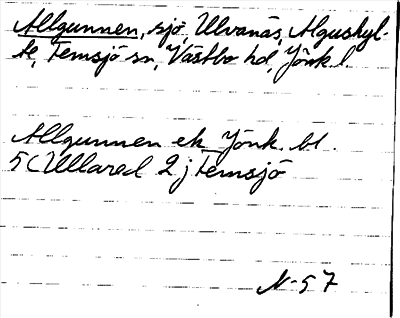 Allgunnen, sjö, Ulvanäs, Algushyl-
te, Femsjö sn, Västbo hd, Jönk. l.
Allgunnen ek Jönk. bl.
5 C Ullared 2 j Femsjö
N-57